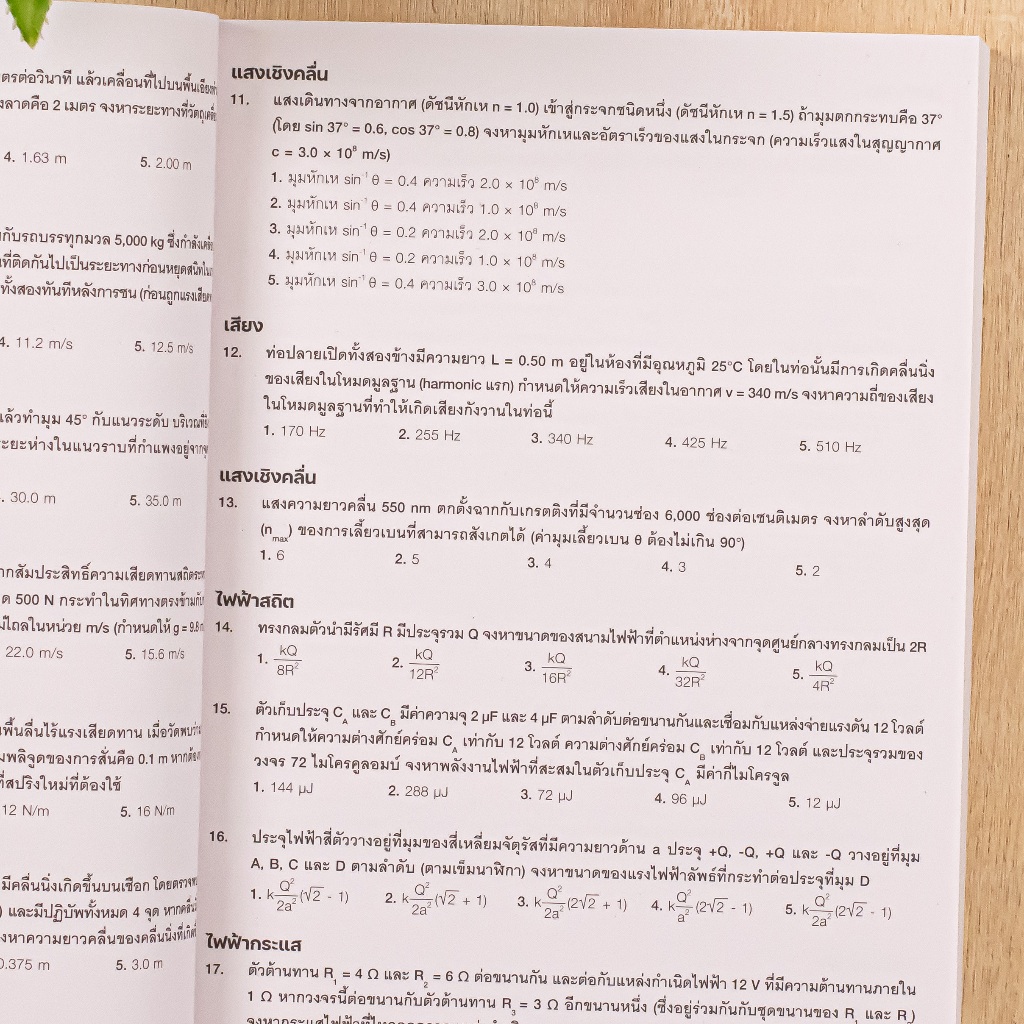 ตรต่อวินาที แล้วเคลื่อนที่ไปบนพื้นเอียง
ลาดคือ 2 เมตร จงหาระยะทางที่วัตถุ
4. 1.63 m 5. 2.00 m
กับรถบรรทุกมวล 5,000 kg ซึ่งกำลัง
ที่ติดกันไปเป็นระยะทางก่อนหยุดสนิท
ทั้งสองทันทีหลังการชน (ก่อนถูกแรงเสียด
4. 11.2 m/s 5. 12.5 m/s
แล้วทำมุม 45° กับแนวระดับ บริเวณ
ระยะห่างในแนวราบที่กำแพงอยู่จาก
. 30.0 m 5. 35.0 m
ากสัมประสิทธิ์ความเสียดทานสถิต
ด 500 N กระทำในทิศทางตรงข้าม
ไถลในหน่วย m/s (กำหนดให้ g = 9.8
22.0 m/s 5. 15.6 m/s
พื้นลื่นไร้แรงเสียดทาน เมื่อวัดพบว่า
มพลิจูดของการสั่นคือ 0.1 m หาก
ที่สปริงใหม่ที่ต้องใช้
12 N/m 5. 16 N/m
มีคลื่นนิ่งเกิดขึ้นบนเชือก โดย
) และมีปฏิบัพทั้งหมด 4 จุด หาก
งหาความยาวคลื่นของคลื่นนิ่งที่
0.375 m 5. 3.0 m
แสงเชิงคลื่น
11. แสงเดินทางจากอากาศ (ดัชนีหักเห n = 1.0) เข้าสู่กระจกชนิดหนึ่ง (ดัชนีหักเห n = 1.5) ถ้ามุมตกกระทบคือ 37°
(โดย sin 37° = 0.6, cos 37° = 0.8) จงหามุมหักเหและอัตราเร็วของแสงในกระจก (ความเร็วแสงในสุญญากาศ
c = 3.0 × 10⁸ m/s)
1. มุมหักเห sin⁻¹ θ = 0.4 ความเร็ว 2.0 × 10⁸ m/s
2. มุมหักเห sin⁻¹ θ = 0.4 ความเร็ว 1.0 × 10⁸ m/s
3. มุมหักเห sin⁻¹ θ = 0.2 ความเร็ว 2.0 × 10⁸ m/s
4. มุมหักเห sin⁻¹ θ = 0.2 ความเร็ว 1.0 × 10⁸ m/s
5. มุมหักเห sin⁻¹ θ = 0.4 ความเร็ว 3.0 × 10⁸ m/s
เสียง
12. ท่อปลายเปิดทั้งสองข้างมีความยาว L = 0.50 m อยู่ในห้องที่มีอุณหภูมิ 25°C โดยในท่อนั้นมีการเกิดคลื่นนิ่ง
ของเสียงในโหมดมูลฐาน (harmonic แรก) กำหนดให้ความเร็วเสียงในอากาศ v = 340 m/s จงหาความถี่ของเสียง
ในโหมดมูลฐานที่ทำให้เกิดเสียงกังวานในท่อนี้
1. 170 Hz 2. 255 Hz 3. 340 Hz 4. 425 Hz 5. 510 Hz
แสงเชิงคลื่น
13. แสงความยาวคลื่น 550 nm ตกตั้งฉากกับเกรตติงที่มีจำนวนช่อง 6,000 ช่องต่อเซนติเมตร จงหาลำดับสูงสุด
(n_max) ของการเลี้ยวเบนที่สามารถสังเกตได้ (ค่ามุมเลี้ยวเบน θ ต้องไม่เกิน 90°)
1. 6 2. 5 3. 4 4. 3 5. 2
ไฟฟ้าสถิต
14. ทรงกลมตัวนำมีรัศมี R มีประจุรวม Q จงหาขนาดของสนามไฟฟ้าที่ตำแหน่งห่างจากจุดศูนย์กลางทรงกลมเป็น 2R
1. kQ/8R² 2. kQ/12R² 3. kQ/16R² 4. kQ/32R² 5. kQ/4R²
15. ตัวเก็บประจุ C_A และ C_B มีค่าความจุ 2 µF และ 4 µF ตามลำดับต่อขนานกันและเชื่อมกับแหล่งจ่ายแรงดัน 12 โวลต์
กำหนดให้ความต่างศักย์คร่อม C_A เท่ากับ 12 โวลต์ ความต่างศักย์คร่อม C_B เท่ากับ 12 โวลต์ และประจุรวมของ
วงจร 72 ไมโครคูลอมบ์ จงหาพลังงานไฟฟ้าที่สะสมในตัวเก็บประจุ C_A มีค่ากี่ไมโครจูล
1. 144 µJ 2. 288 µJ 3. 72 µJ 4. 96 µJ 5. 12 µJ
16. ประจุไฟฟ้าสี่ตัววางอยู่ที่มุมของสี่เหลี่ยมจัตุรัสที่มีความยาวด้าน a ประจุ +Q, -Q, +Q และ -Q วางอยู่ที่มุม
A, B, C และ D ตามลำดับ (ตามเข็มนาฬิกา) จงหาขนาดของแรงไฟฟ้าลัพธ์ที่กระทำต่อประจุที่มุม D
1. k Q²/2a² (√2 - 1) 2. k Q²/2a² (√2 + 1) 3. k Q²/2a² (2√2 + 1) 4. k Q²/a² (2√2 - 1) 5. k Q²/2a² (2√2 - 1)
ไฟฟ้ากระแส
17. ตัวต้านทาน R₁ = 4 Ω และ R₂ = 6 Ω ต่อขนานกัน และต่อกับแหล่งกำเนิดไฟฟ้า 12 V ที่มีความต้านทานภายใน
1 Ω หากวงจรนี้ต่อขนานกับตัวต้านทาน R₃ = 3 Ω อีกขนานหนึ่ง (ซึ่งอยู่ร่วมกันกับชุดขนานของ R₁ และ R₂)